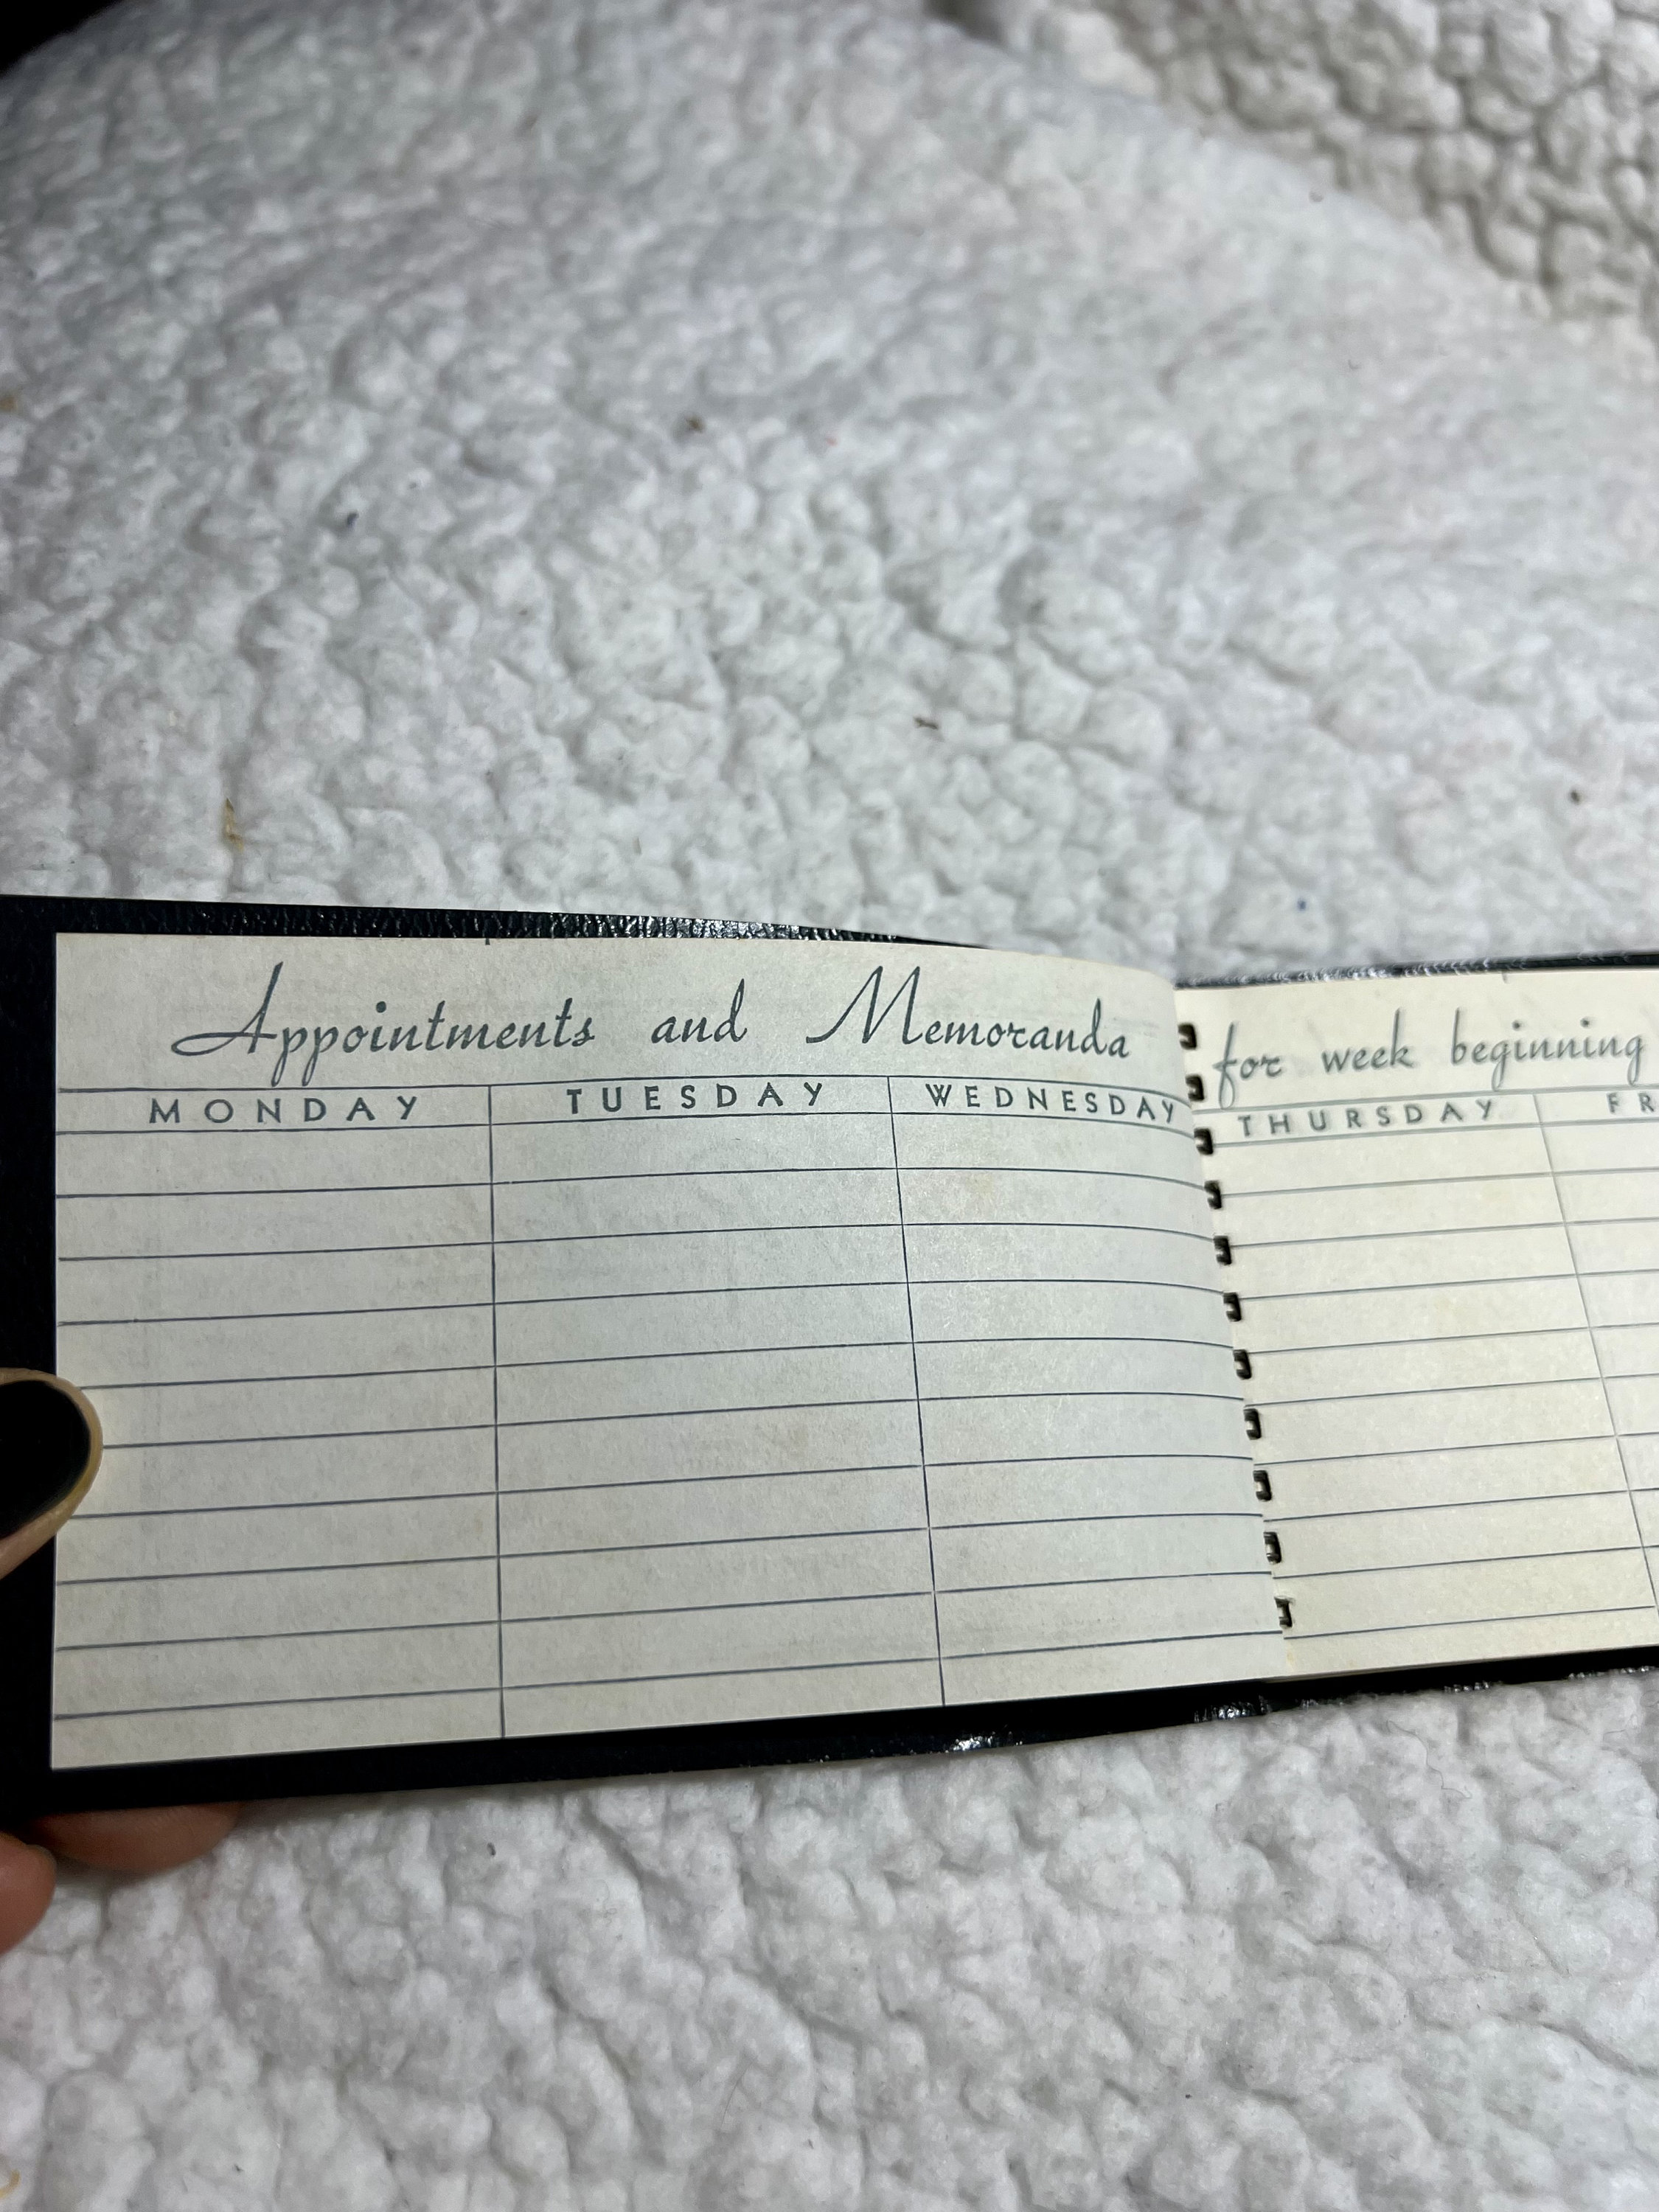 Appointments and Memoranda for week beginning
MONDAY TUESDAY WEDNESDAY THURSDAY FR